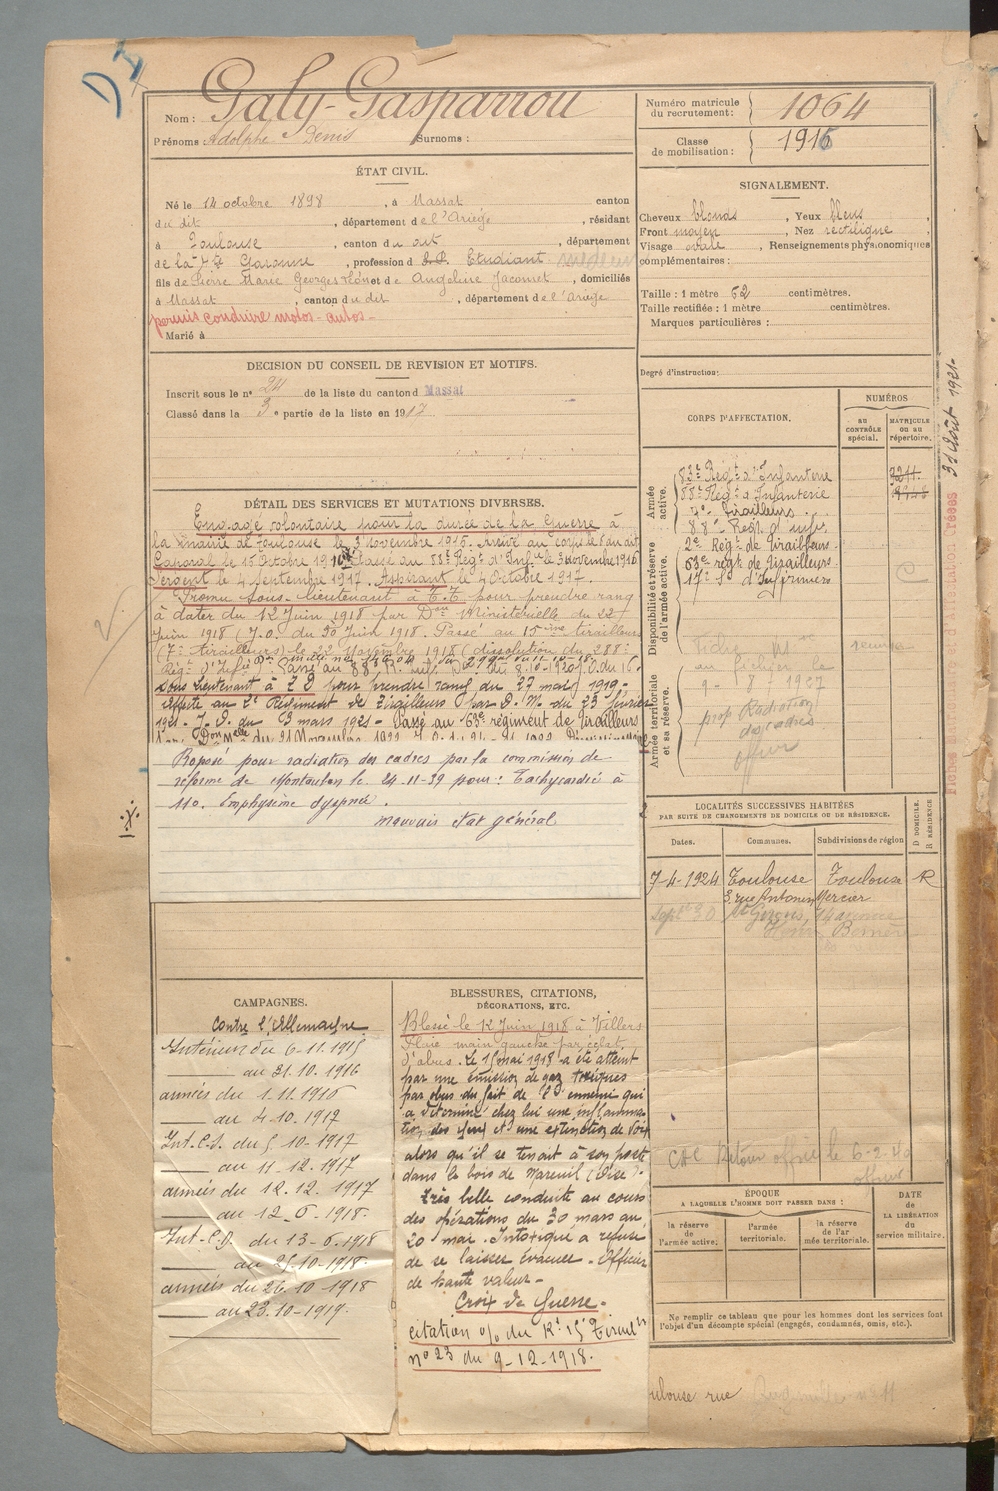 Nom : Galy-Gasparrou
Prénoms Adolphe Denis Surnoms :
Numéro matricule du recrutement : 1064
Classe de mobilisation : 1916
ÉTAT CIVIL.
Né le 14 octobre 1898, à Massat canton
du dit, département de l'Ariège, résidant
à Toulouse, canton du dit, département
de la Hte Garonne, profession d Etudiant
fils de Pierre Marie Georges et de Angeline Jacomet, domiciliés
à Massat, canton du dit, département de l'Ariège
permis conduire motos - autos -
Marié à
SIGNALEMENT.
Cheveux blonds, Yeux bleus,
Front moyen, Nez rectiligne,
Visage ovale, Renseignements physionomiques
complémentaires :
Taille : 1 mètre 62 centimètres.
Taille rectifiée : 1 mètre centimètres.
Marques particulières :
Degré d'instruction :
DECISION DU CONSEIL DE REVISION ET MOTIFS.
Inscrit sous le n° 24 de la liste du canton d Massat
Classé dans la 3e partie de la liste en 1917
DÉTAIL DES SERVICES ET MUTATIONS DIVERSES.
Engagé volontaire pour la durée de la Guerre à
la mairie de Toulouse le 3 novembre 1915. Arrivé au corps le dit
Caporal le 15 Octobre 1916 Passé au 88e Régt d'Infie le 3 novembre 1916
Sergent le 4 septembre 1917. Aspirant le 4 octobre 1917.
Promu Sous-lieutenant à T.T. pour prendre rang
à dater du 12 Juin 1918 par Don Ministérielle du 22
Juin 1918 (J.O. du 30 Juin 1918. Passé au 15ème tirailleurs
(7e tirailleurs) le 22 novembre 1918 (dissolution du 288e
Régt d'Infie Passé au 88e
Sous Lieutenant à T D pour prendre rang du 27 mars 1919 -
Affecté au 2e Régiment de Tirailleurs par D. M. du 23 février
1921 - J. O. du 3 mars 1921 - Passé au 63e régiment de Tirailleurs
Proposé pour radiation des cadres par la commission de
réforme de Montauban le 24-11-39 pour : Tachycardie à
110. Emphysème dyspnée.
mauvais état général
CORPS D'AFFECTATION.
NUMÉROS
AU CONTRÔLE spécial.
MATRICULE ou au répertoire.
Armée active.
83e Régt d'Infanterie 3211
88e Régt d'Infanterie
7e Tirailleurs
88e Régt d'Infie
Disponibilité et réserve de l'armée active.
2e Régt de Tirailleurs
63e régt de Tirailleurs
17e Son d'Infirmiers
Armée territoriale et sa réserve.
9-8-1927
prop Radiation
des cadres
offier
31 Août 1921
LOCALITÉS SUCCESSIVES HABITÉES
PAR SUITE DE CHANGEMENTS DE DOMICILE OU DE RÉSIDENCE.
Dates. Communes. Subdivisions de région D DOMICILE. R RÉSIDENCE
7-4-1924 Toulouse Toulouse R
3, rue Antonin Mercier
Sept 30 St Girons
le 6-2-40
ÉPOQUE
A LAQUELLE L'HOMME DOIT PASSER DANS :
la réserve de l'armée active.
l'armée territoriale.
la réserve de l'armée territoriale.
DATE DE LA LIBÉRATION du service militaire.
Ne remplir ce tableau que pour les hommes dont les services font
l'objet d'un décompte spécial (engagés, condamnés, omis, etc.).
CAMPAGNES.
Contre l'Allemagne
Intérieur du 6-11-1915
au 31.10.1916
armées du 1.11.1916
au 4.10.1917
Int. C.S. du 5.10.1917
au 11.12.1917
armées du 12.12.1917
au 12.6.1918.
Int-C.D. du 13-6-1918
au 25-10-1918.
armées du 26-10-1918
au 23.10-1919.
BLESSURES, CITATIONS,
DÉCORATIONS, ETC.
Blessé le 12 Juin 1918 à Villers
Plaie main gauche par éclat
d'obus. Le 15 mai 1918 a été atteint
par une émission de gaz toxiques
par obus du fait de l'ennemi qui
a déterminé chez lui une inflamma
tion des yeux et une extinction de voix
alors qu'il se tenait à son poste
dans le bois de Mareuil (Oise).
Très belle conduite au cours
des opérations du 30 mars au
20 mai. Intoxiqué a refusé
de se laisser évacuer. Officier
de haute valeur -
Croix de Guerre.
Citation o/o du Rt 15e Tiraill
n° 23 du 9-12-1918.